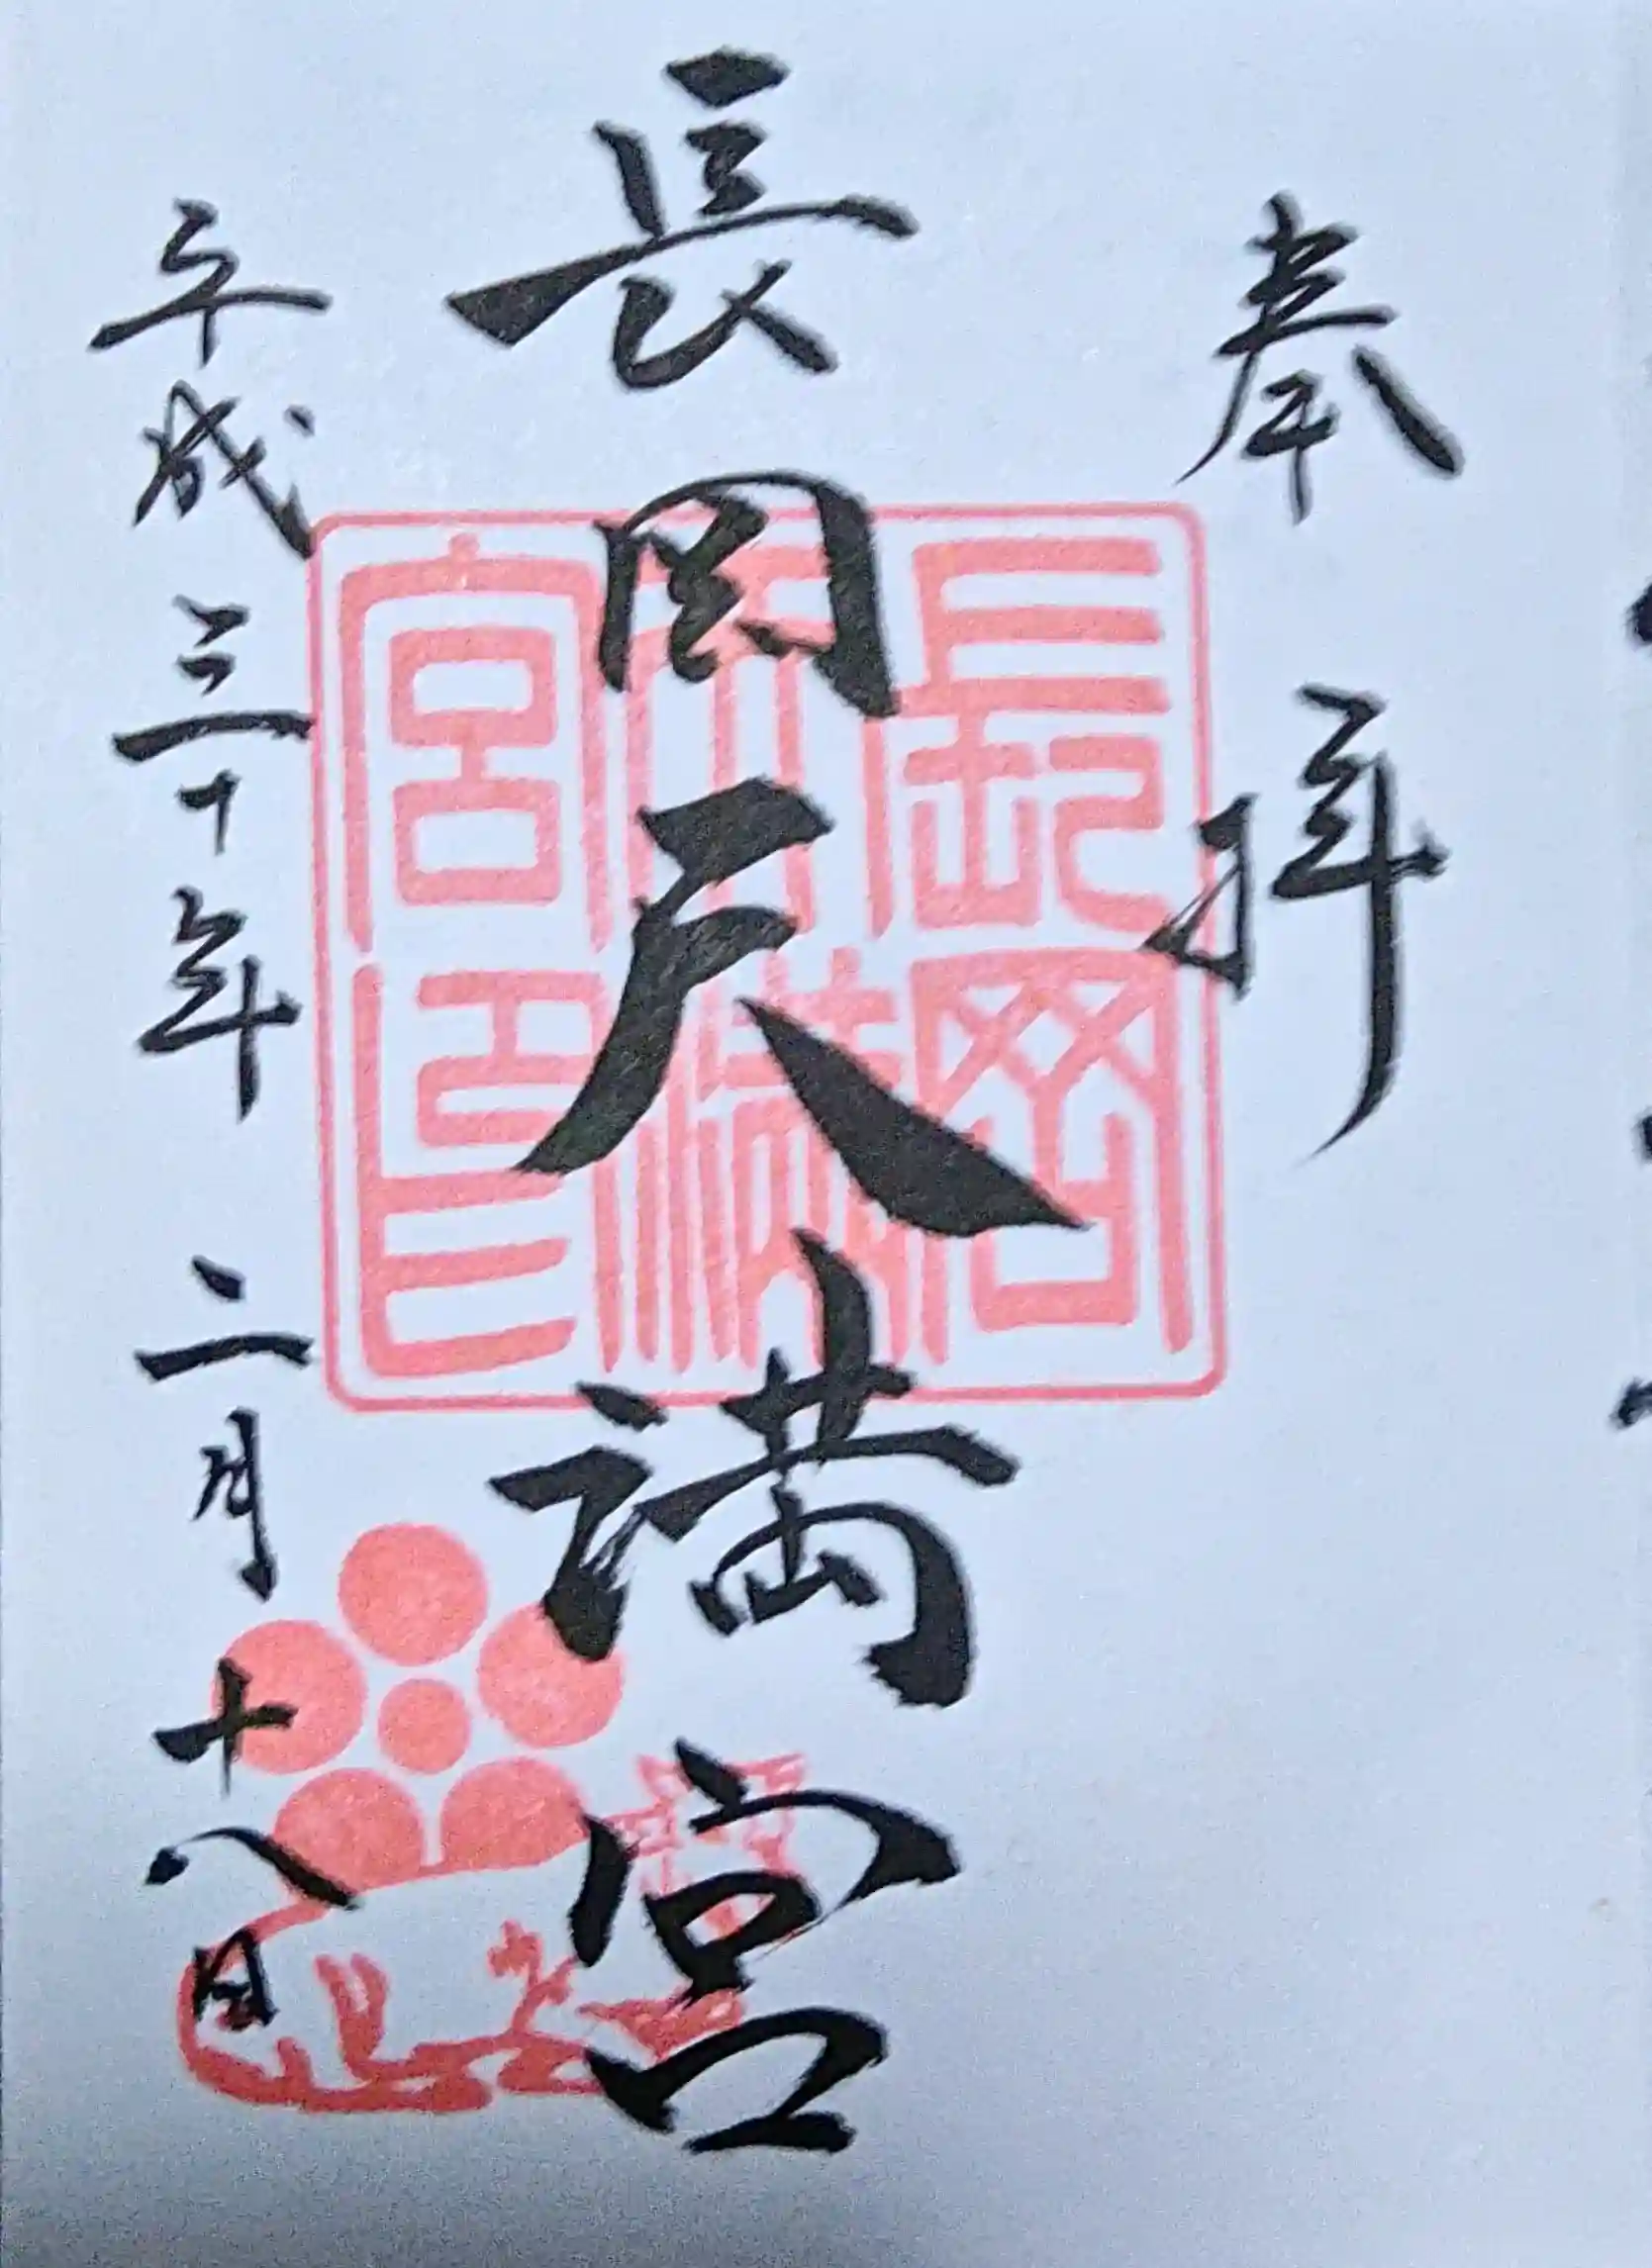 奉拝
長岡天満宮
平成三十年二月十八日
長岡天満宮印